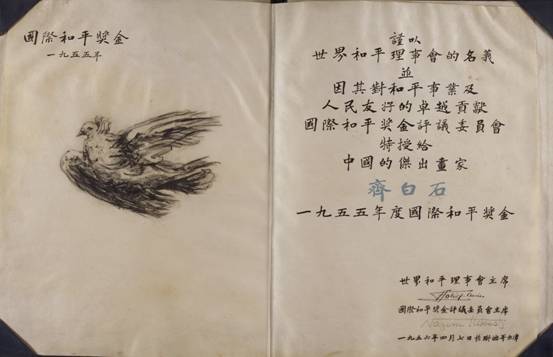 國際和平奬金
一九五五年
謹以
世界和平理事會的名義
並
因其對和平事業及
人民友好的卓越貢獻
國際和平奬金評議委員會
特授給
中國的傑出畫家
齊白石
一九五五年度國際和平奬金
世界和平理事會主席
國際和平奬金評議委員會主席
一九五六年四月七日於斯德哥尔摩